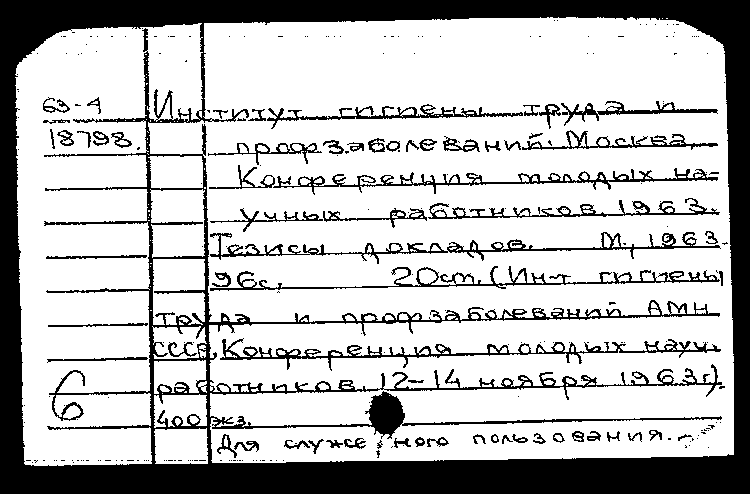 63-4 Институт гигиены труда и
18798. профзаболеваний. Москва.
Конференция молодых на-
учных работников. 1963.
Тезисы докладов. М., 1963.
96с. 20 cm. (Ин-т гигиены
труда и профзаболеваний АМН
СССР. Конференция молодых науч.
6 работников. 12-14 ноября 1963г).
400 экз.
Для служебного пользования.